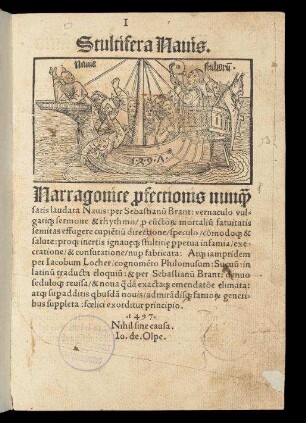 I
Stultifera Nauis.
Nauis stultorũ.
.1.4.9.A.
Narragonice ꝓfectionis nunꝗ̃
satis laudata Nauis: per Sebastianũ Brant: vernaculo vul-
gariqꝫ sermone & rhythmo/ ꝑ cũctoꝝ mortaliũ fatuitatis
semitas effugere cupiẽtiũ directione/ speculo/ cõmodoqꝫ &
salute: proqꝫ inertis ignaueqꝫ stulticię ꝑpetua infamia/ exe-
cratione/ & confutatione/ nuꝑ fabricata: Atqꝫ iampridem
per Iacobum Locher/ cognomẽto Philomusum: Sueuũ: in
latinũ traducta eloquiũ: & per Sebastianũ Brant: denuo
seduloqꝫ reuisa/ & noua ꝗdã exactaqꝫ emendatõe elimata:
atqꝫ supadditis qbusdã nouis/ admirãdisqꝫ fatuoꝝ generi-
bus suppleta: fœlici exorditur principio.
.1497.
Nihil sine causa.
Io. de. Olpe.